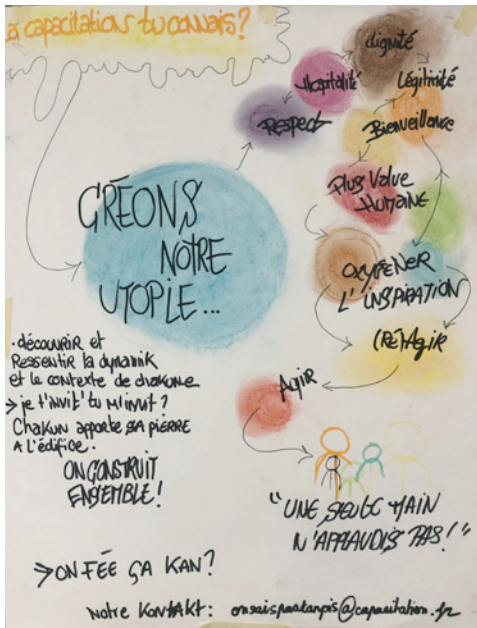 La capacitation tu connais?
dignité
Hospitalité
Légitimité
Respect
Bienveillance
Plus Value
Humaine
CRÉONS
NOTRE
UTOPIE...
OXYGENER
L'INSPIRATION
(RÉ)Agir
Agir
• découvrir et
Ressentir la dynamik
et le contexte de chakune
→ je t'invit' tu m'invit?
Chakun apporte sa pierre
A l'édifice.
ON CONSTRUIT
ENSEMBLE!
"UNE SEULE MAIN
N'APPLAUDIS PAS!"
→ ON FÉE ÇA KAN?
Notre KONTAKT: onsaispastanpis@capacitation.fr